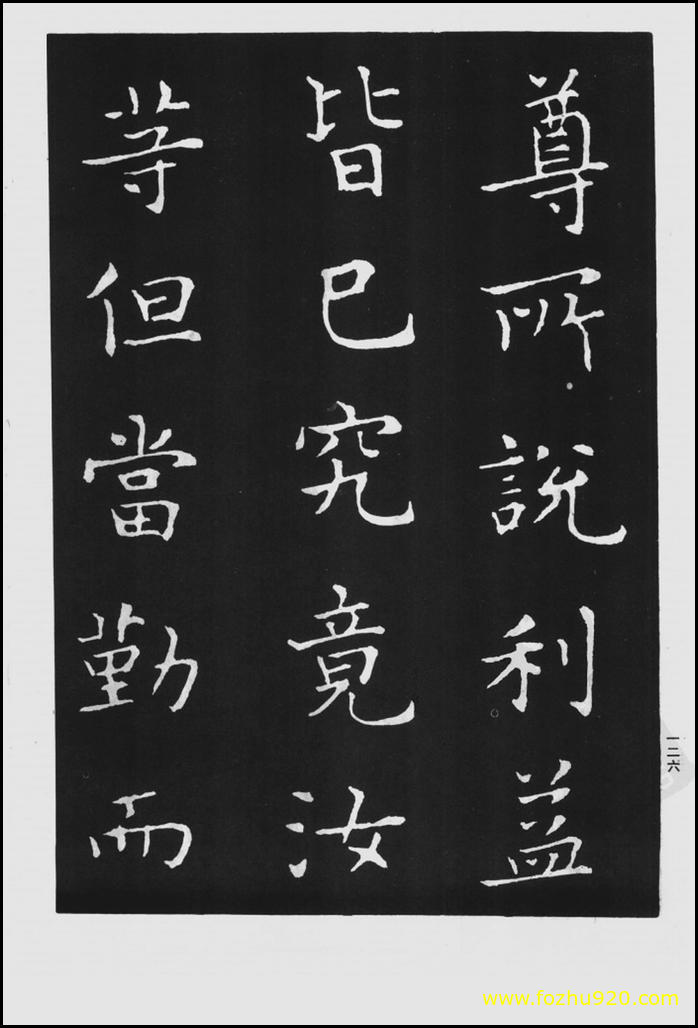 尊所說利益
皆已究竟汝
等但當勤而
一二六
www.fozhu920.com